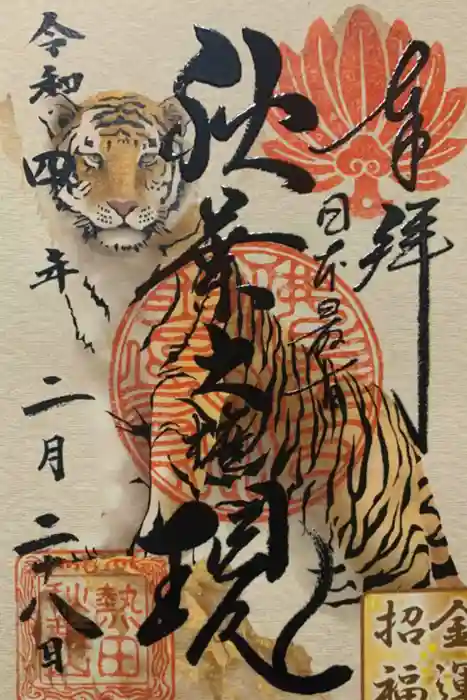 奉拝
日本最古
秋葉大権現
令和四年 二月 二十八日
熱田
金運
招福